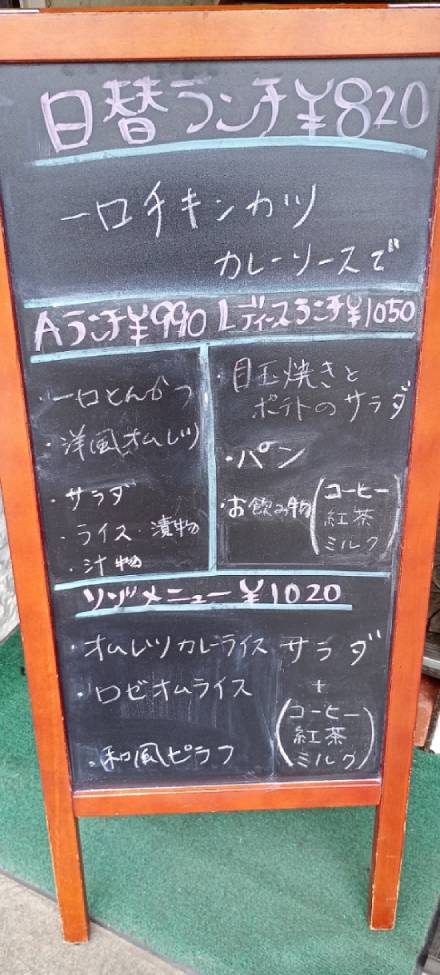 日替ランチ¥820
一口チキンカツ
カレーソースで
Aランチ¥990
・一口とんかつ
・洋風オムレツ
・サラダ
・ライス・漬物
・汁物
レディースランチ¥1050
・目玉焼きと
ポテトのサラダ
・パン
・お飲み物(コーヒー
紅茶
ミルク)
メニュー ¥1020
・オムレツカレーライス
・ロゼオムライス
・和風ピラフ
サラダ
+
(コーヒー
紅茶
ミルク)